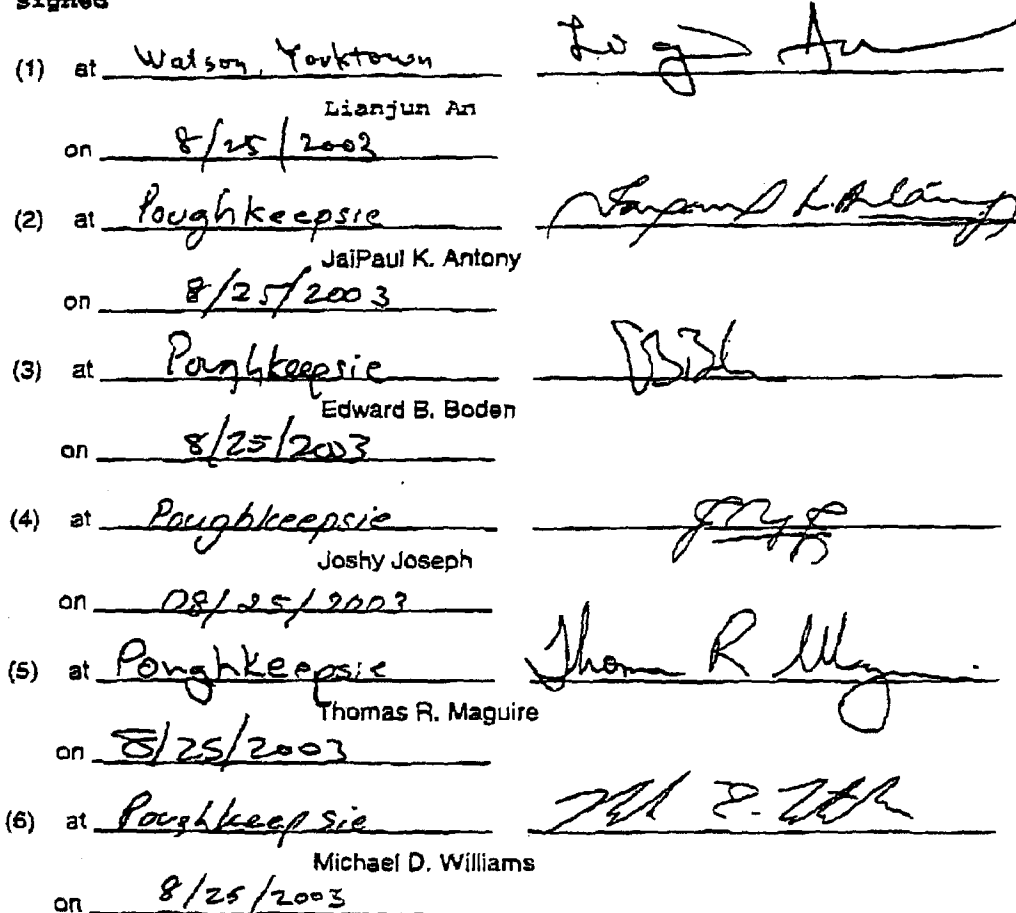 signed
(1) at Watson, Yorktown
Lianjun An
on 8/25/2003
(2) at Poughkeepsie
JaiPaul K. Antony
on 8/25/2003
(3) at Poughkeepsie
Edward B. Boden
on 8/25/2003
(4) at Poughkeepsie
Joshy Joseph
on 08/25/2003
(5) at Poughkeepsie Thomas R Maguire
Thomas R. Maguire
on 8/25/2003
(6) at Poughkeepsie
Michael D. Williams
on 8/25/2003